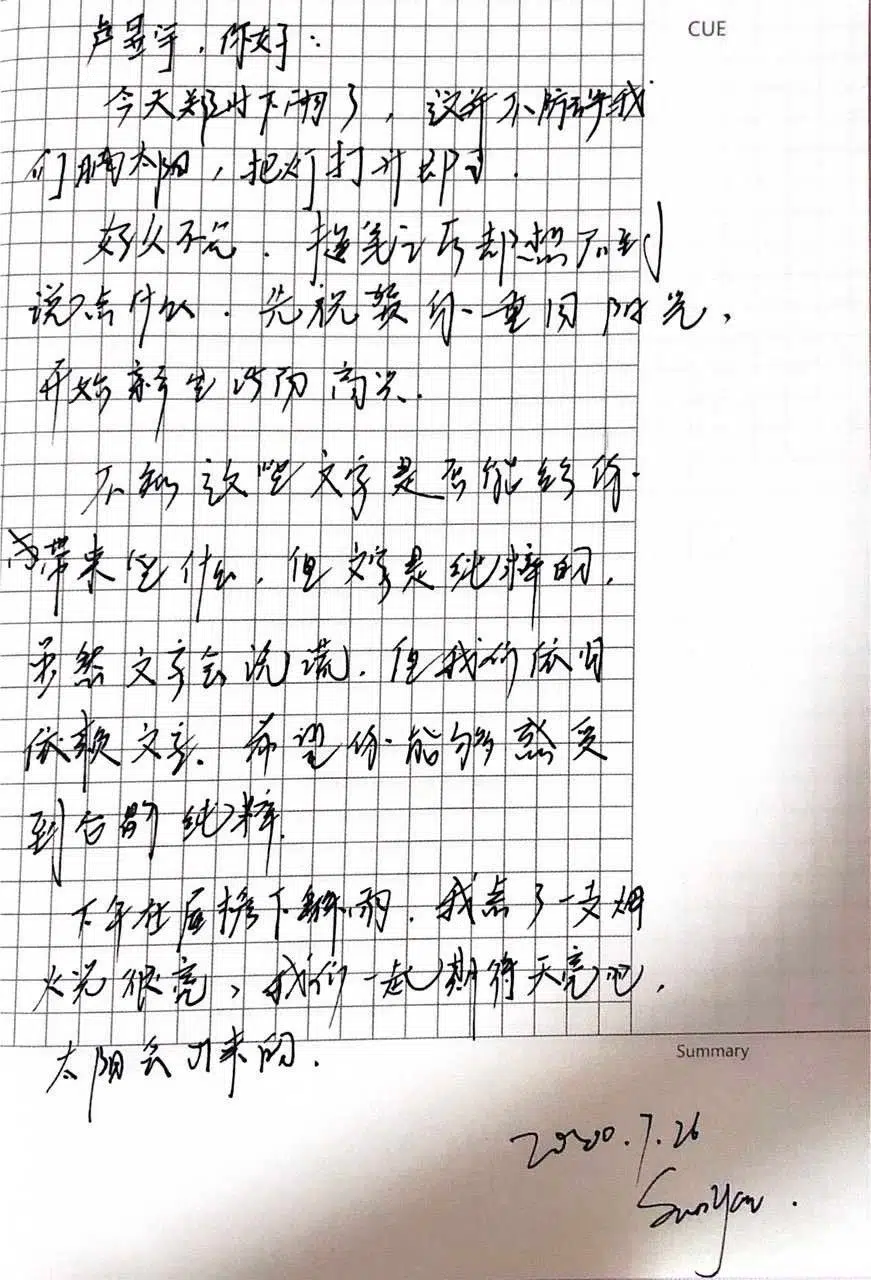 CUE
卢昱宇，你好：
今天郑州下雨了，这并不妨碍我
们晒太阳，把灯打开即可．
好久不见．提笔之后却想不到
说点什么．先祝贺你重回阳光，
开始新生活而高兴．
不知这些文字是否能给你
带来些什么．但文字是纯粹的．
虽然文字会说谎．但我们依旧
依赖文字．希望你能够感受
到它的纯粹．
下午在屋檐下躲雨．我点了一支烟
火光很亮，我们一起期待天亮吧．
太阳会出来的．
Summary
2020.7.26